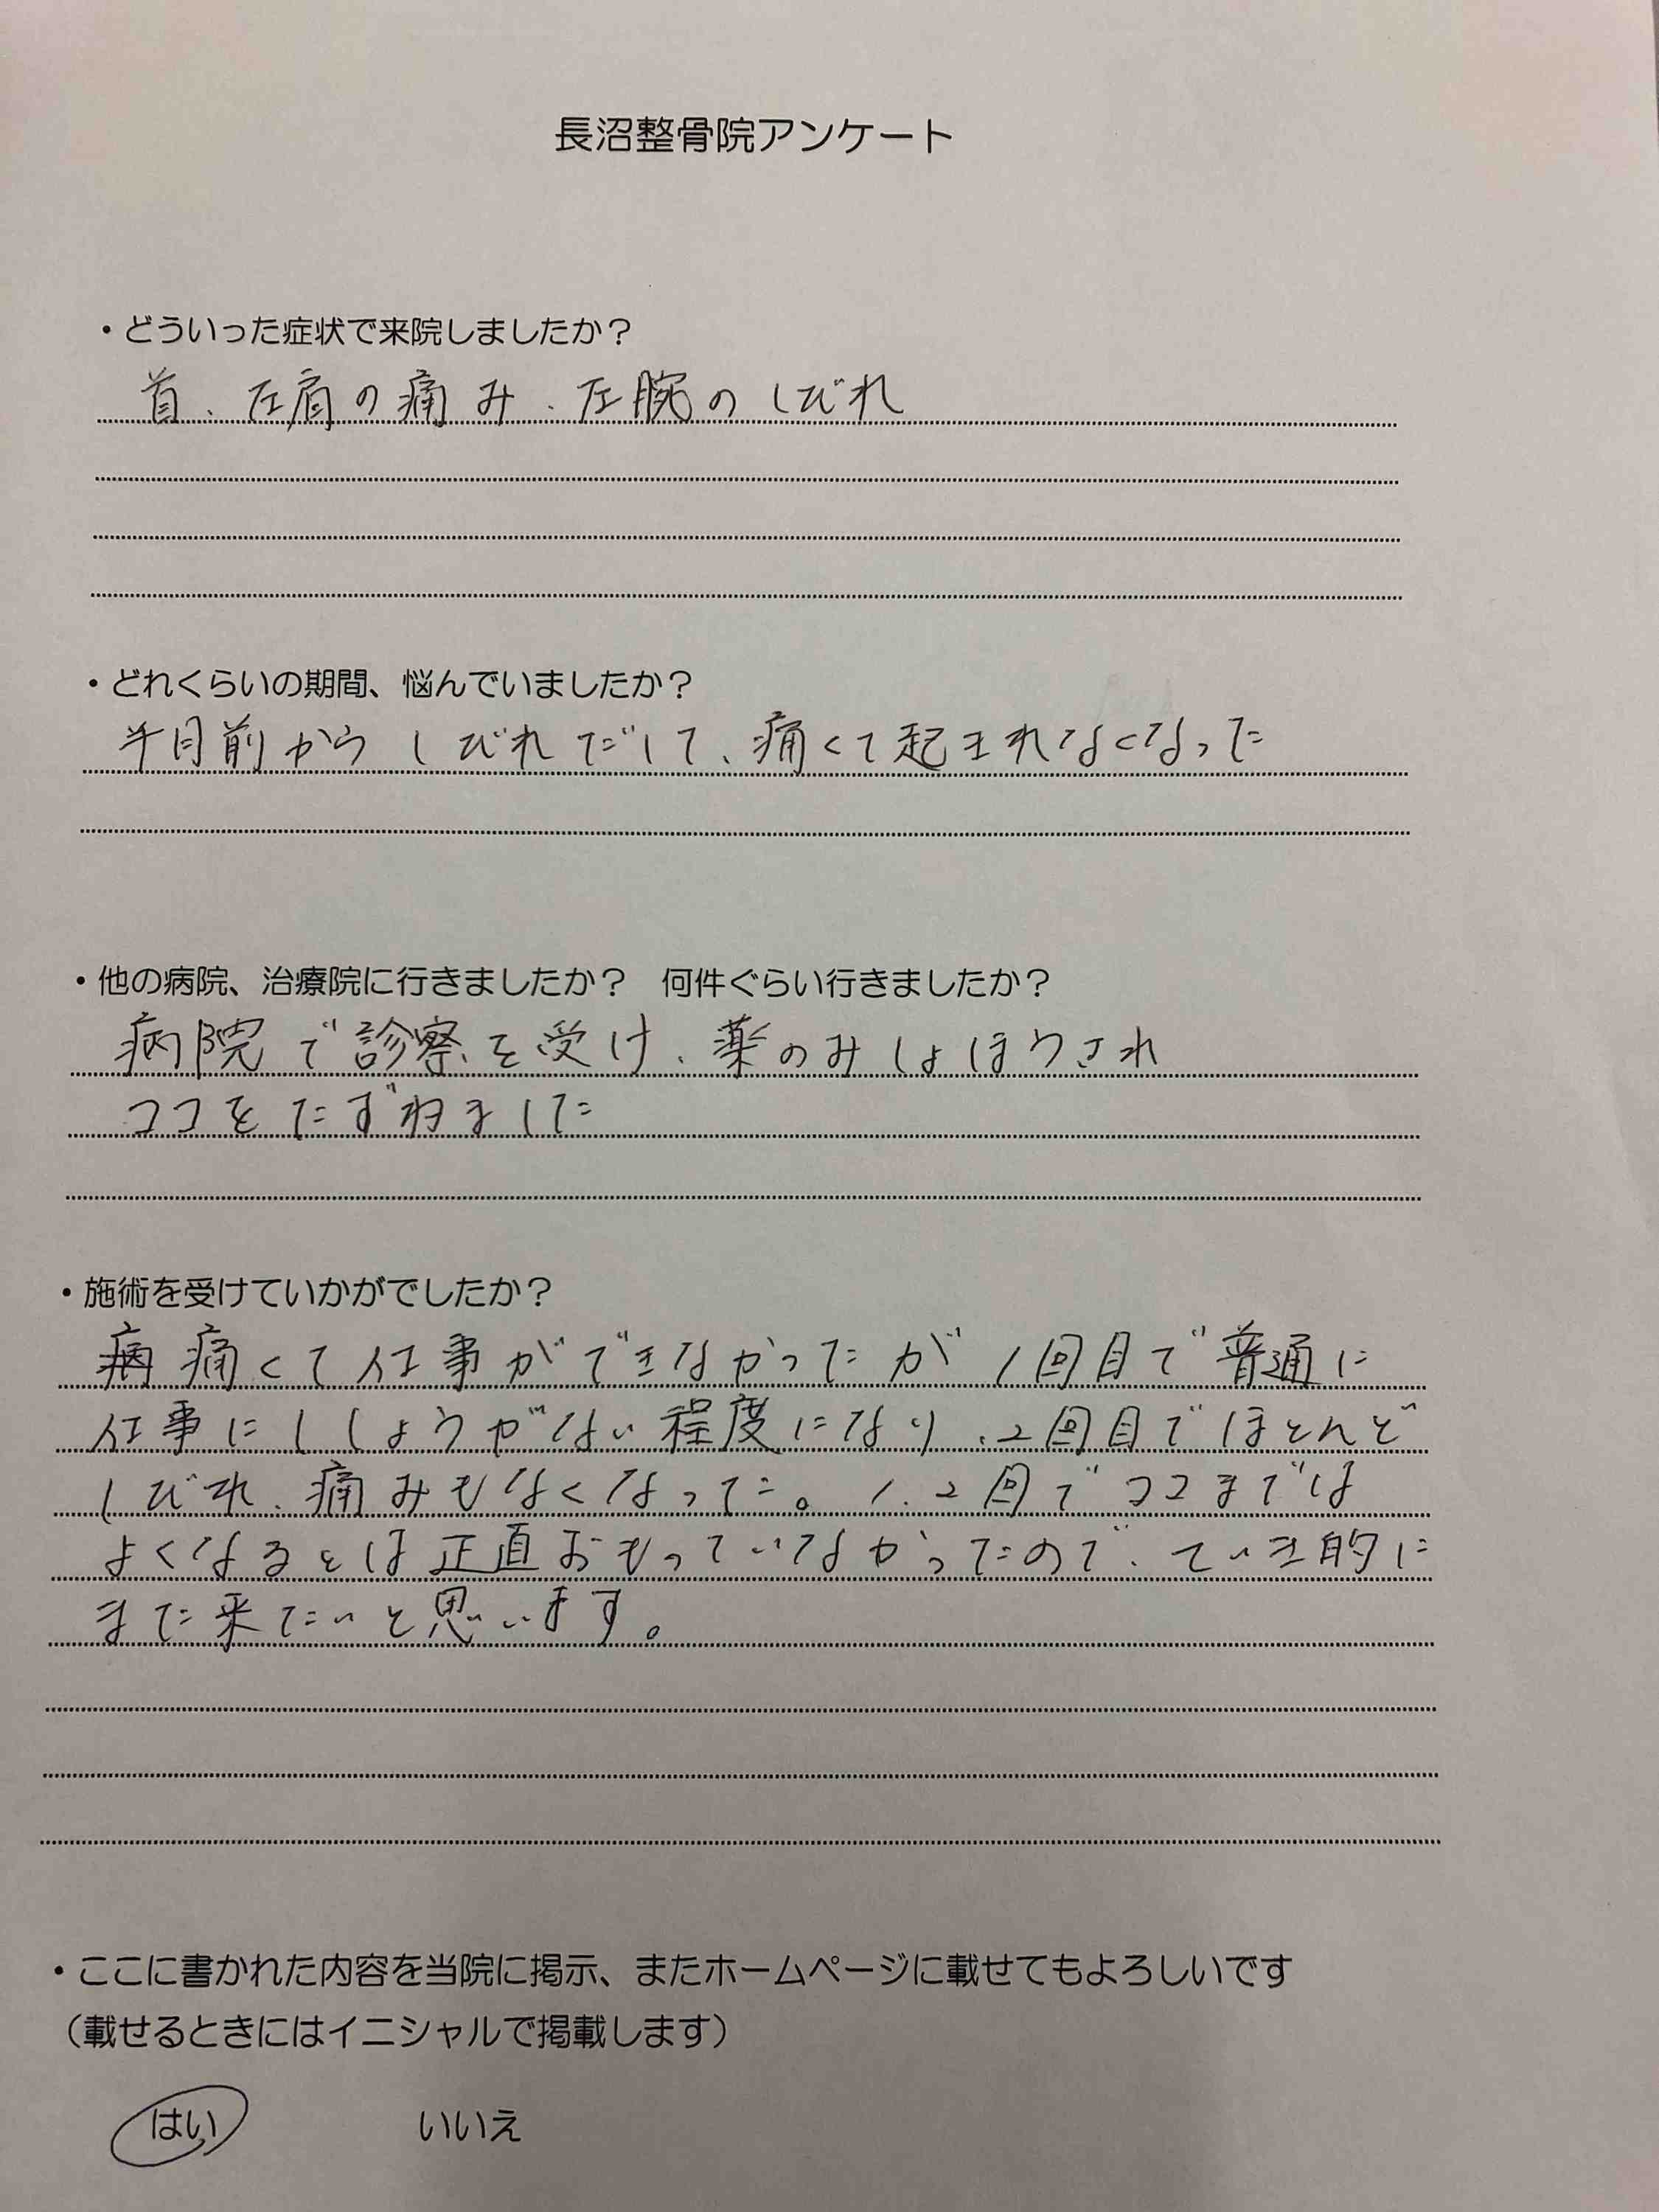 長沼整骨院アンケート
・どういった症状で来院しましたか？
首、左肩の痛み、左腕のしびれ
・どれくらいの期間、悩んでいましたか？
半月前からしびれだして、痛くて起きれなくなった
・他の病院、治療院に行きましたか？　何件ぐらい行きましたか？
病院で診察を受け、薬のみしょほうされ
ココをたずねました
・施術を受けていかがでしたか？
痛くて仕事ができなかったが1回目で普通に
仕事にししょうがない程度になり、2回目でほとんど
しびれ、痛みもなくなった。1、2回でココまでは
よくなるとは正直おもっていなかったので、ていき的に
また来たいと思います。
・ここに書かれた内容を当院に掲示、またホームページに載せてもよろしいです
（載せるときにはイニシャルで掲載します）
はい　いいえ